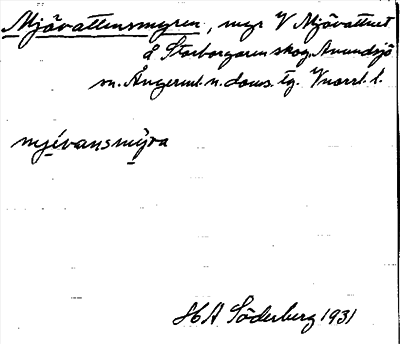 Mjövattensmyren, myr V Mjövattnet
å Storborgaren skog, Anundsjö
sn. Ångerml. n. doms. tg. Vnorrl. l.
mjèvansmýra
HA Söderberg 1931